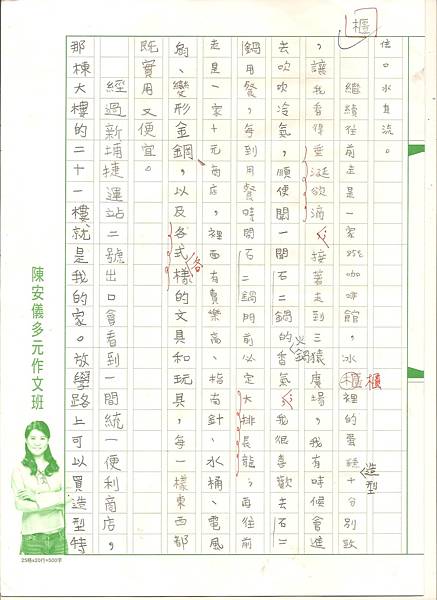 櫃
住。水直流。
繼續往前走是一家咖啡館,冰櫃裡的蛋糕十分別致
櫃
造型
,讓我看得垂涎欲滴。接著走到三猿廣場,我有時候會進
去吹吹冷氣,順便聞一聞石二鍋的香氣。我很喜歡去石二
火鍋
鍋用餐,每到用餐時間石二鍋門前必定大排長龍。再往前
走是一家十元商店,裡面有賣樂高、指南針、水桶、電風
扇、變形金鋼,以及各式樣的文具和玩具,每一樣東西都
各
既實用又便宜。
經過新埔捷運站二號出口會看到一間統一便利商店,
那棟大樓的二十一樓就是我的家。放學路上可以買造型特
陳安儀多元作文班
25格x20行=500字